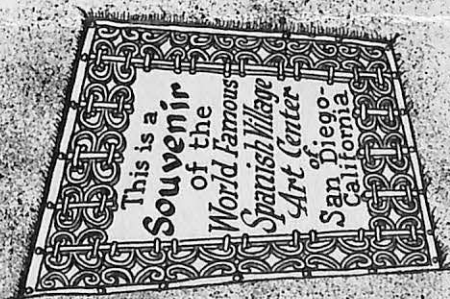 This is a
Souvenir
of the
World Famous
Spanish Village
Art Center
of
San Diego-
California